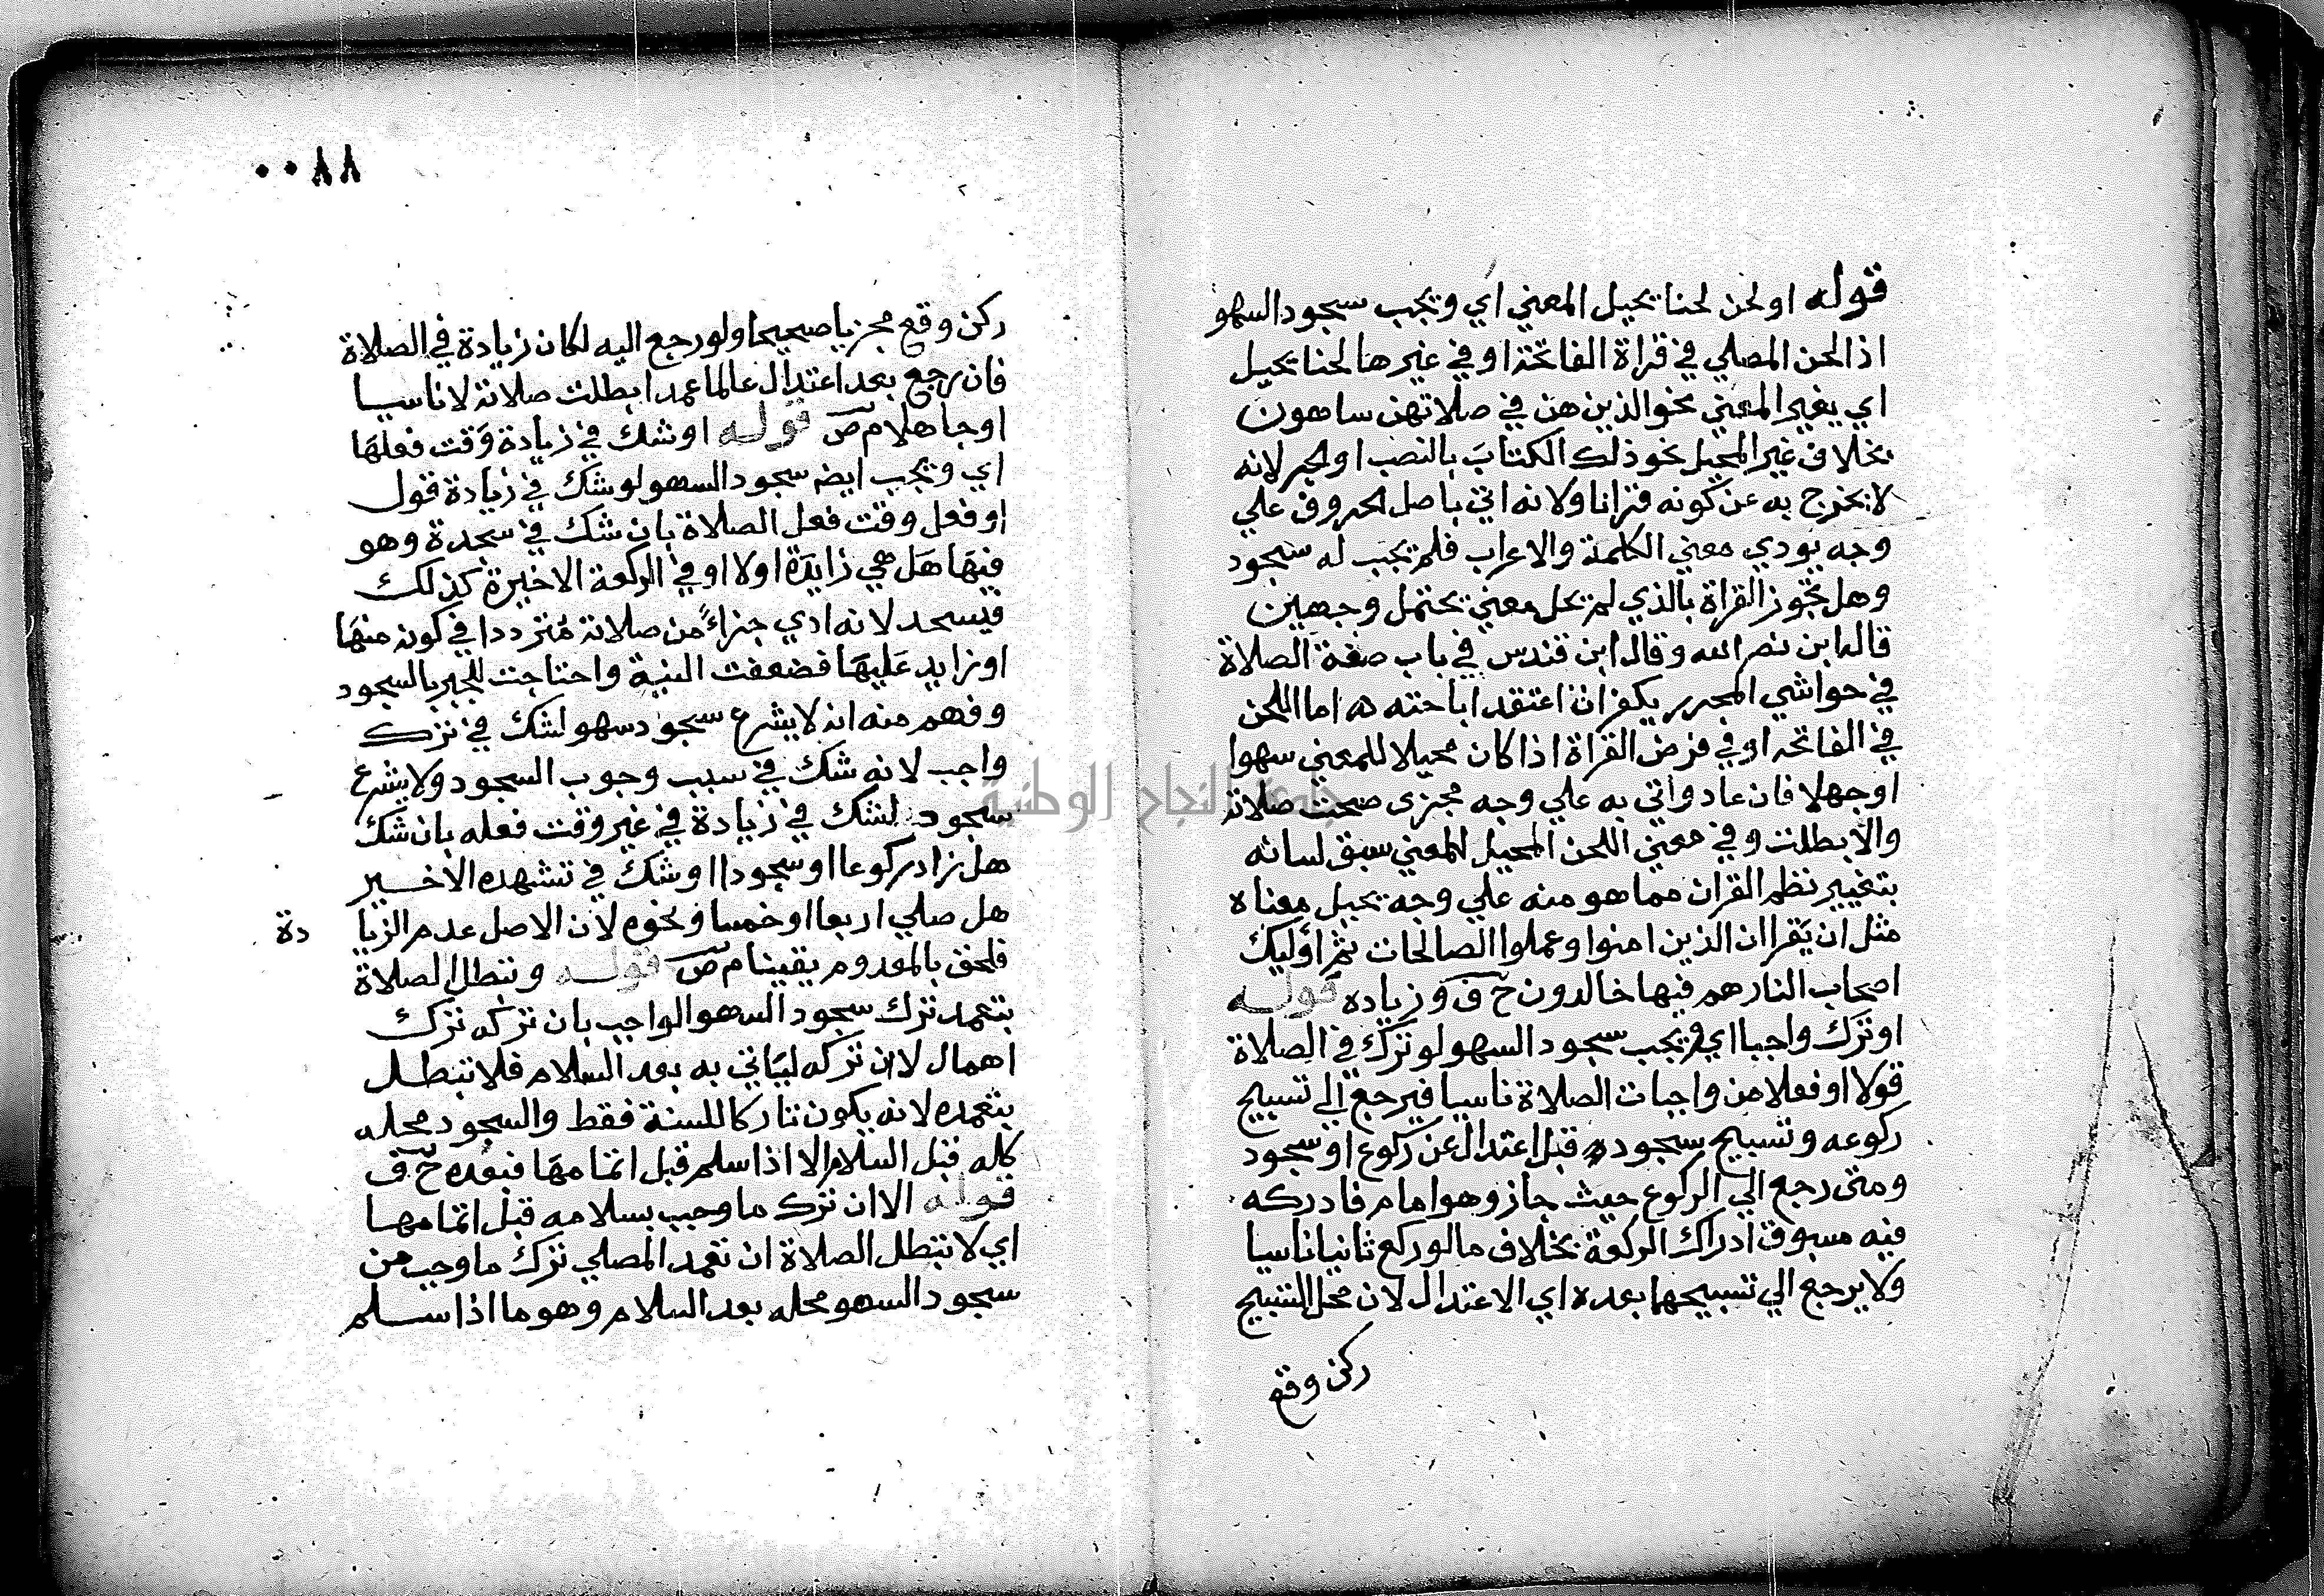 قوله او لحن لحنا يحيل المعني اي ويجب سجود السهو
اذا لحن المصلي في قراة الفاتحة او في غيرها لحنا يحيل
اي يغير المعني نحو الذين هن في صلاتهن ساهون
بخلاف غير المحيل نحو ذلك الكتابَ بالنصب او الجر لانه
لا يخرج به عن كونه قرانا ولانه اتي باصل الحروف علي
وجه يودي معني الكلمة والاعراب فلم يجب له سجود
وهل تجوز القراة بالذي لم يحل معني يحتمل وجهين
قاله ابن نصر الله وقال ابن قندس في باب صفة الصلاة
في حواشي المحرر يكفر ان اعتقد اباحته ه اما اللحن
في الفاتحه او في فرض القراة اذا كان محيلا للمعني سهوا
او جهلا فان عاد واتي به علي وجه مجزى صحت صلاته
والا بطلت وفي معني اللحن المحيل للمعني سبق لسانه
بتغيير نظم القران مما هو منه علي وجه يحيل معناه
مثل ان يقرا ان الذين امنوا وعملوا الصالحات ثم اوليك
اصحاب النار هم فيها خالدون ح ف وزياده قوله
او ترك واجبا اي ويجب سجود السهو لو ترك في الصلاة
قولا او فعلا من واجبات الصلاة ناسيا فيرجع الي تسبيح
ركوعه وتسبيح سجوده قبل اعتدال عن ركوع او سجود
ومتى رجع الي الركوع حيث جاز وهو امام فادركه
فيه مسبوق ادراك الركعة بخلاف ما لو ركع ثانيا ناسيا
ولا يرجع الي تسبيحها بعده اي الاعتدال لان محل التسبيح
ركن وقع
٨٨٠٠
ركن وقع مجزيا صحيحا ولو رجع اليه لكان زيادة في الصلاة
فان رجع بعد اعتدال عالما عمدا بطلت صلاته لا ناسيا
او جاهلا م ص قوله او شك في زيادة وقت فعلها
اي ويجب ايض سجود السهو لو شك في زيادة قول
او فعل وقت فعل الصلاة بان شك في سجدة وهو
فيها هل هي زايدة اولا او في الركعة الاخيرة كذلك
فيسجد لانه ادي جزاءً من صلاته مُتردد ا في كونه منها
او زايد عليها فضعفت النية واحتاجت للجبر بالسجود
وفهم منه انه لا يشرع سجود سهو لشك في ترك
واجب لانه شك في سبب وجوب السجود ولا يشرع
سجود لشك في زيادة في غير وقت فعله بان شك
هل زاد ركوعا او سجودا او شك في تشهده الاخير
هل صلي اربعا او خمسا ونحوه لان الاصل عدم الزيا دة
فلحق بالمعدوم يقينا م ص قوله وتبطل الصلاة
بتعمد ترك سجود السهو الواجب بان تركه ترك
اهمال لا ان تركه ليَاتي به بعد السلام فلا تبطل
بتعمده لانه يكون تاركا للسنة فقط والسجود محله
كله قبل السلام الا اذا سلم قبل اتمامها فبعده ح ف
قوله الا ان ترك ما وجب بسلامه قبل اتمامها
اي لا تبطل الصلاة ان تعمد المصلي ترك ما وجب من
سجود السهو محله بعد السلام وهو ما اذا سلم
جامعة النجاح الوطنية